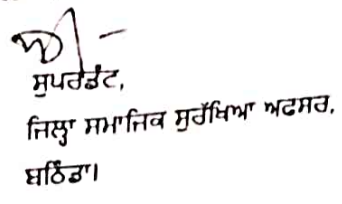 ਸੁਪਰਡੰਟ,
ਜਿਲ੍ਹਾ ਸਮਾਜਿਕ ਸੁਰੱਖਿਆ ਅਫਸਰ,
ਬਠਿੰਡਾ।